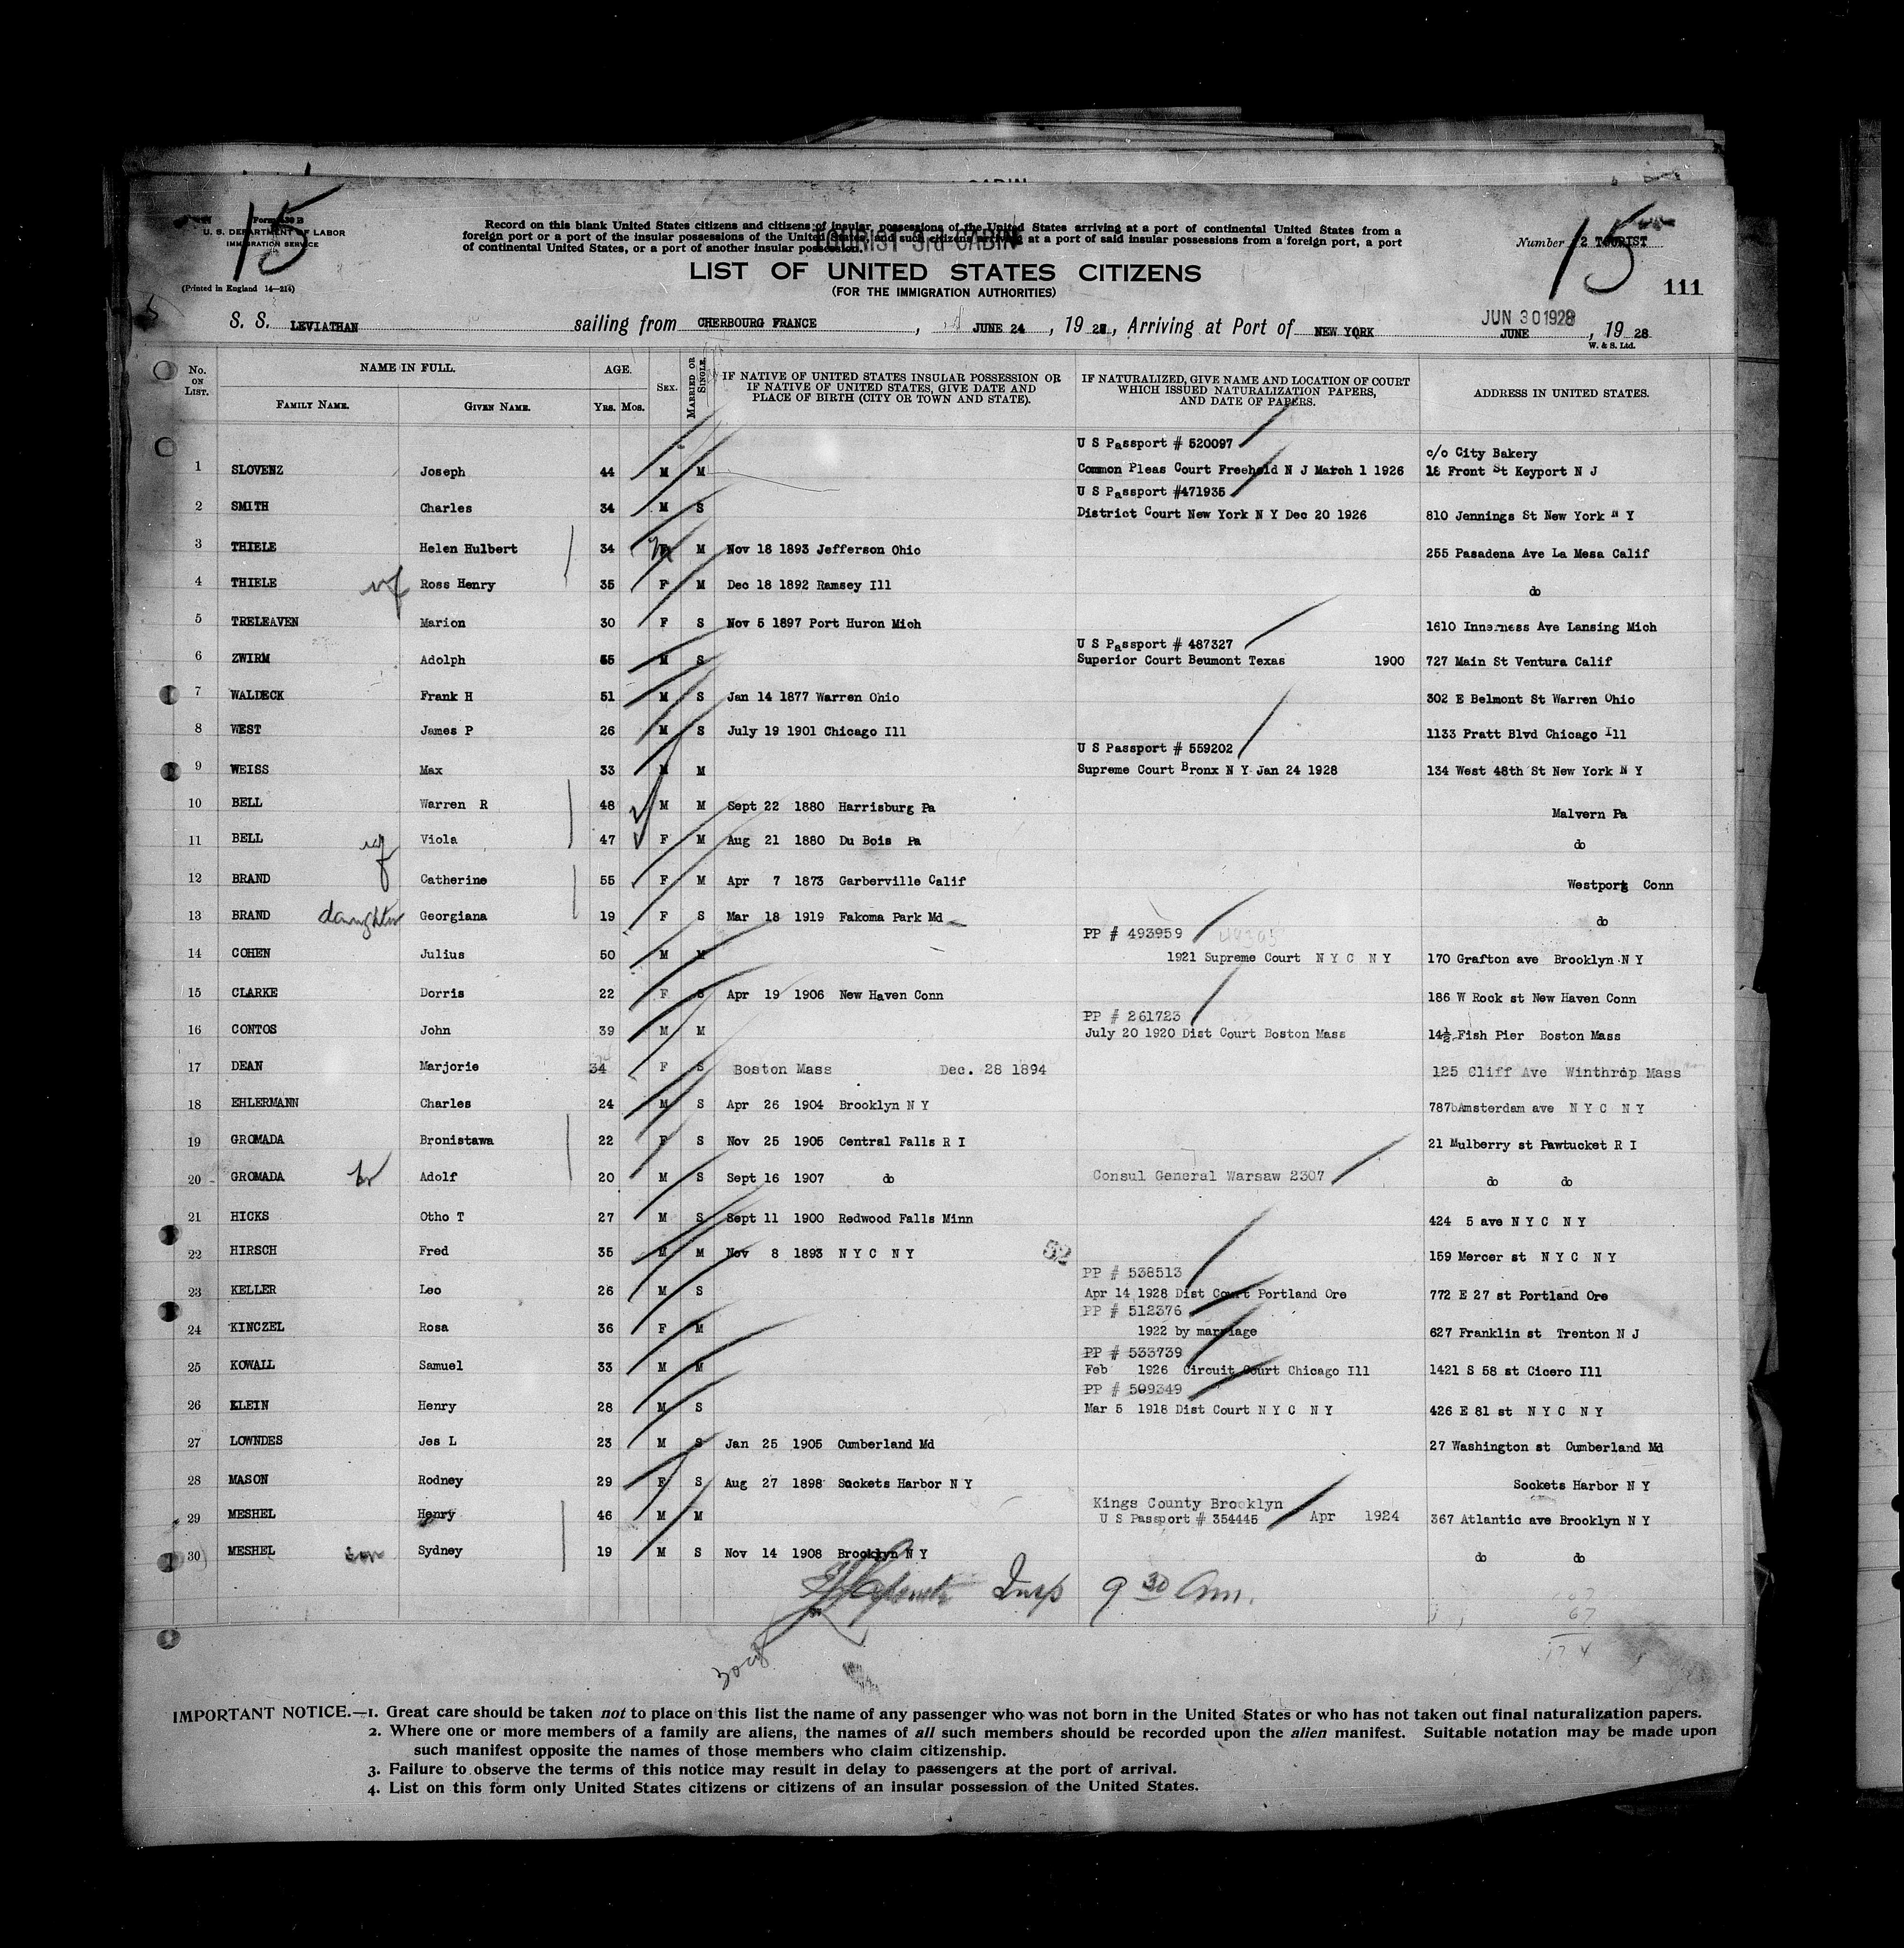 15
Form 630 B
U. S. DEPARTMENT OF LABOR
IMMIGRATION SERVICE
(Printed in England 14—214)
Record on this blank United States citizens and citizens of insular possessions of the United States arriving at a port of continental United States from a
foreign port or a port of the insular possessions of the United States, and such citizens arriving at a port of said insular possessions from a foreign port, a port
of continental United States, or a port of another insular possession.
TOURIST 3rd CABIN
Number 2 TOURIST
15
111
LIST OF UNITED STATES CITIZENS
(FOR THE IMMIGRATION AUTHORITIES)
S. S. LEVIATHAN sailing from CHERBOURG FRANCE, JUNE 24, 1928, Arriving at Port of NEW YORK JUN 30 1928 JUNE, 1928
W. & S. Ltd.
No. ON LIST. NAME IN FULL. FAMILY NAME. GIVEN NAME. AGE. YRS. MOS. SEX. MARRIED OR SINGLE. IF NATIVE OF UNITED STATES INSULAR POSSESSION OR IF NATIVE OF UNITED STATES, GIVE DATE AND PLACE OF BIRTH (CITY OR TOWN AND STATE). IF NATURALIZED, GIVE NAME AND LOCATION OF COURT WHICH ISSUED NATURALIZATION PAPERS, AND DATE OF PAPERS. ADDRESS IN UNITED STATES.
U S Passport # 520097 c/o City Bakery
1 SLOVENZ Joseph 44 M M Common Pleas Court Freehold N J March 1 1926 18 Front St Keyport N J
U S Passport #471935
2 SMITH Charles 34 M S District Court New York N Y Dec 20 1926 810 Jennings St New York N Y
3 THIELE Helen Hulbert 34 M Nov 18 1893 Jefferson Ohio 255 Pasadena Ave La Mesa Calif
4 THIELE wf Ross Henry 35 F M Dec 18 1892 Ramsey Ill do
5 TRELEAVEN Marion 30 F S Nov 5 1897 Port Huron Mich 1610 Innerness Ave Lansing Mich
U S Passport # 487327
6 ZWIRM Adolph 55 M S Superior Court Beumont Texas 1900 727 Main St Ventura Calif
7 WALDECK Frank H 51 M S Jan 14 1877 Warren Ohio 302 E Belmont St Warren Ohio
8 WEST James P 26 M S July 19 1901 Chicago Ill 1133 Pratt Blvd Chicago Ill
U S Passport # 559202
9 WEISS Max 33 M M Supreme Court Bronx N Y Jan 24 1928 134 West 48th St New York N Y
10 BELL Warren R 48 M M Sept 22 1880 Harrisburg Pa Malvern Pa
11 BELL wf Viola 47 F M Aug 21 1880 Du Bois Pa do
12 BRAND Catherine 55 F M Apr 7 1873 Garberville Calif Westport Conn
13 BRAND daughter Georgiana 19 F S Mar 18 1919 Fakoma Park Md do
PP # 493959
14 COHEN Julius 50 M M 1921 Supreme Court N Y C N Y 170 Grafton ave Brooklyn N Y
15 CLARKE Dorris 22 F S Apr 19 1906 New Haven Conn 186 W Rock st New Haven Conn
PP # 261723
16 CONTOS John 39 M M July 20 1920 Dist Court Boston Mass 14½ Fish Pier Boston Mass
17 DEAN Marjorie 34 F S Boston Mass Dec. 28 1894 125 Cliff Ave Winthrop Mass
18 EHLERMANN Charles 24 M S Apr 26 1904 Brooklyn N Y 787 Amsterdam ave N Y C N Y
19 GROMADA Bronistawa 22 F S Nov 25 1905 Central Falls R I 21 Mulberry st Pawtucket R I
20 GROMADA br Adolf 20 M S Sept 16 1907 do Consul General Warsaw 2307 do do
21 HICKS Otho T 27 M S Sept 11 1900 Redwood Falls Minn 424 5 ave N Y C N Y
22 HIRSCH Fred 35 M M Nov 8 1893 N Y C N Y 52 159 Mercer st N Y C N Y
PP # 538513
23 KELLER Leo 26 M S Apr 14 1928 Dist Court Portland Ore 772 E 27 st Portland Ore
PP # 512376
24 KINCZEL Rosa 36 F M 1922 by marriage 627 Franklin st Trenton N J
PP # 533739
25 KOWALL Samuel 33 M M Feb 1926 Circuit Court Chicago Ill 1421 S 58 st Cicero Ill
PP # 509349
26 KLEIN Henry 28 M S Mar 5 1918 Dist Court N Y C N Y 426 E 81 st N Y C N Y
27 LOWNDES Jes L 23 M S Jan 25 1905 Cumberland Md 27 Washington st Cumberland Md
28 MASON Rodney 29 F S Aug 27 1898 Sockets Harbor N Y Sockets Harbor N Y
Kings County Brooklyn
29 MESHEL Henry 46 M M U S Passport # 354445 Apr 1924 367 Atlantic ave Brooklyn N Y
30 MESHEL son Sydney 19 M S Nov 14 1908 Brooklyn N Y do do
Insp 9 30 Am.
67
174
30 us
IMPORTANT NOTICE.—1. Great care should be taken not to place on this list the name of any passenger who was not born in the United States or who has not taken out final naturalization papers.
2. Where one or more members of a family are aliens, the names of all such members should be recorded upon the alien manifest. Suitable notation may be made upon
such manifest opposite the names of those members who claim citizenship.
3. Failure to observe the terms of this notice may result in delay to passengers at the port of arrival.
4. List on this form only United States citizens or citizens of an insular possession of the United States.